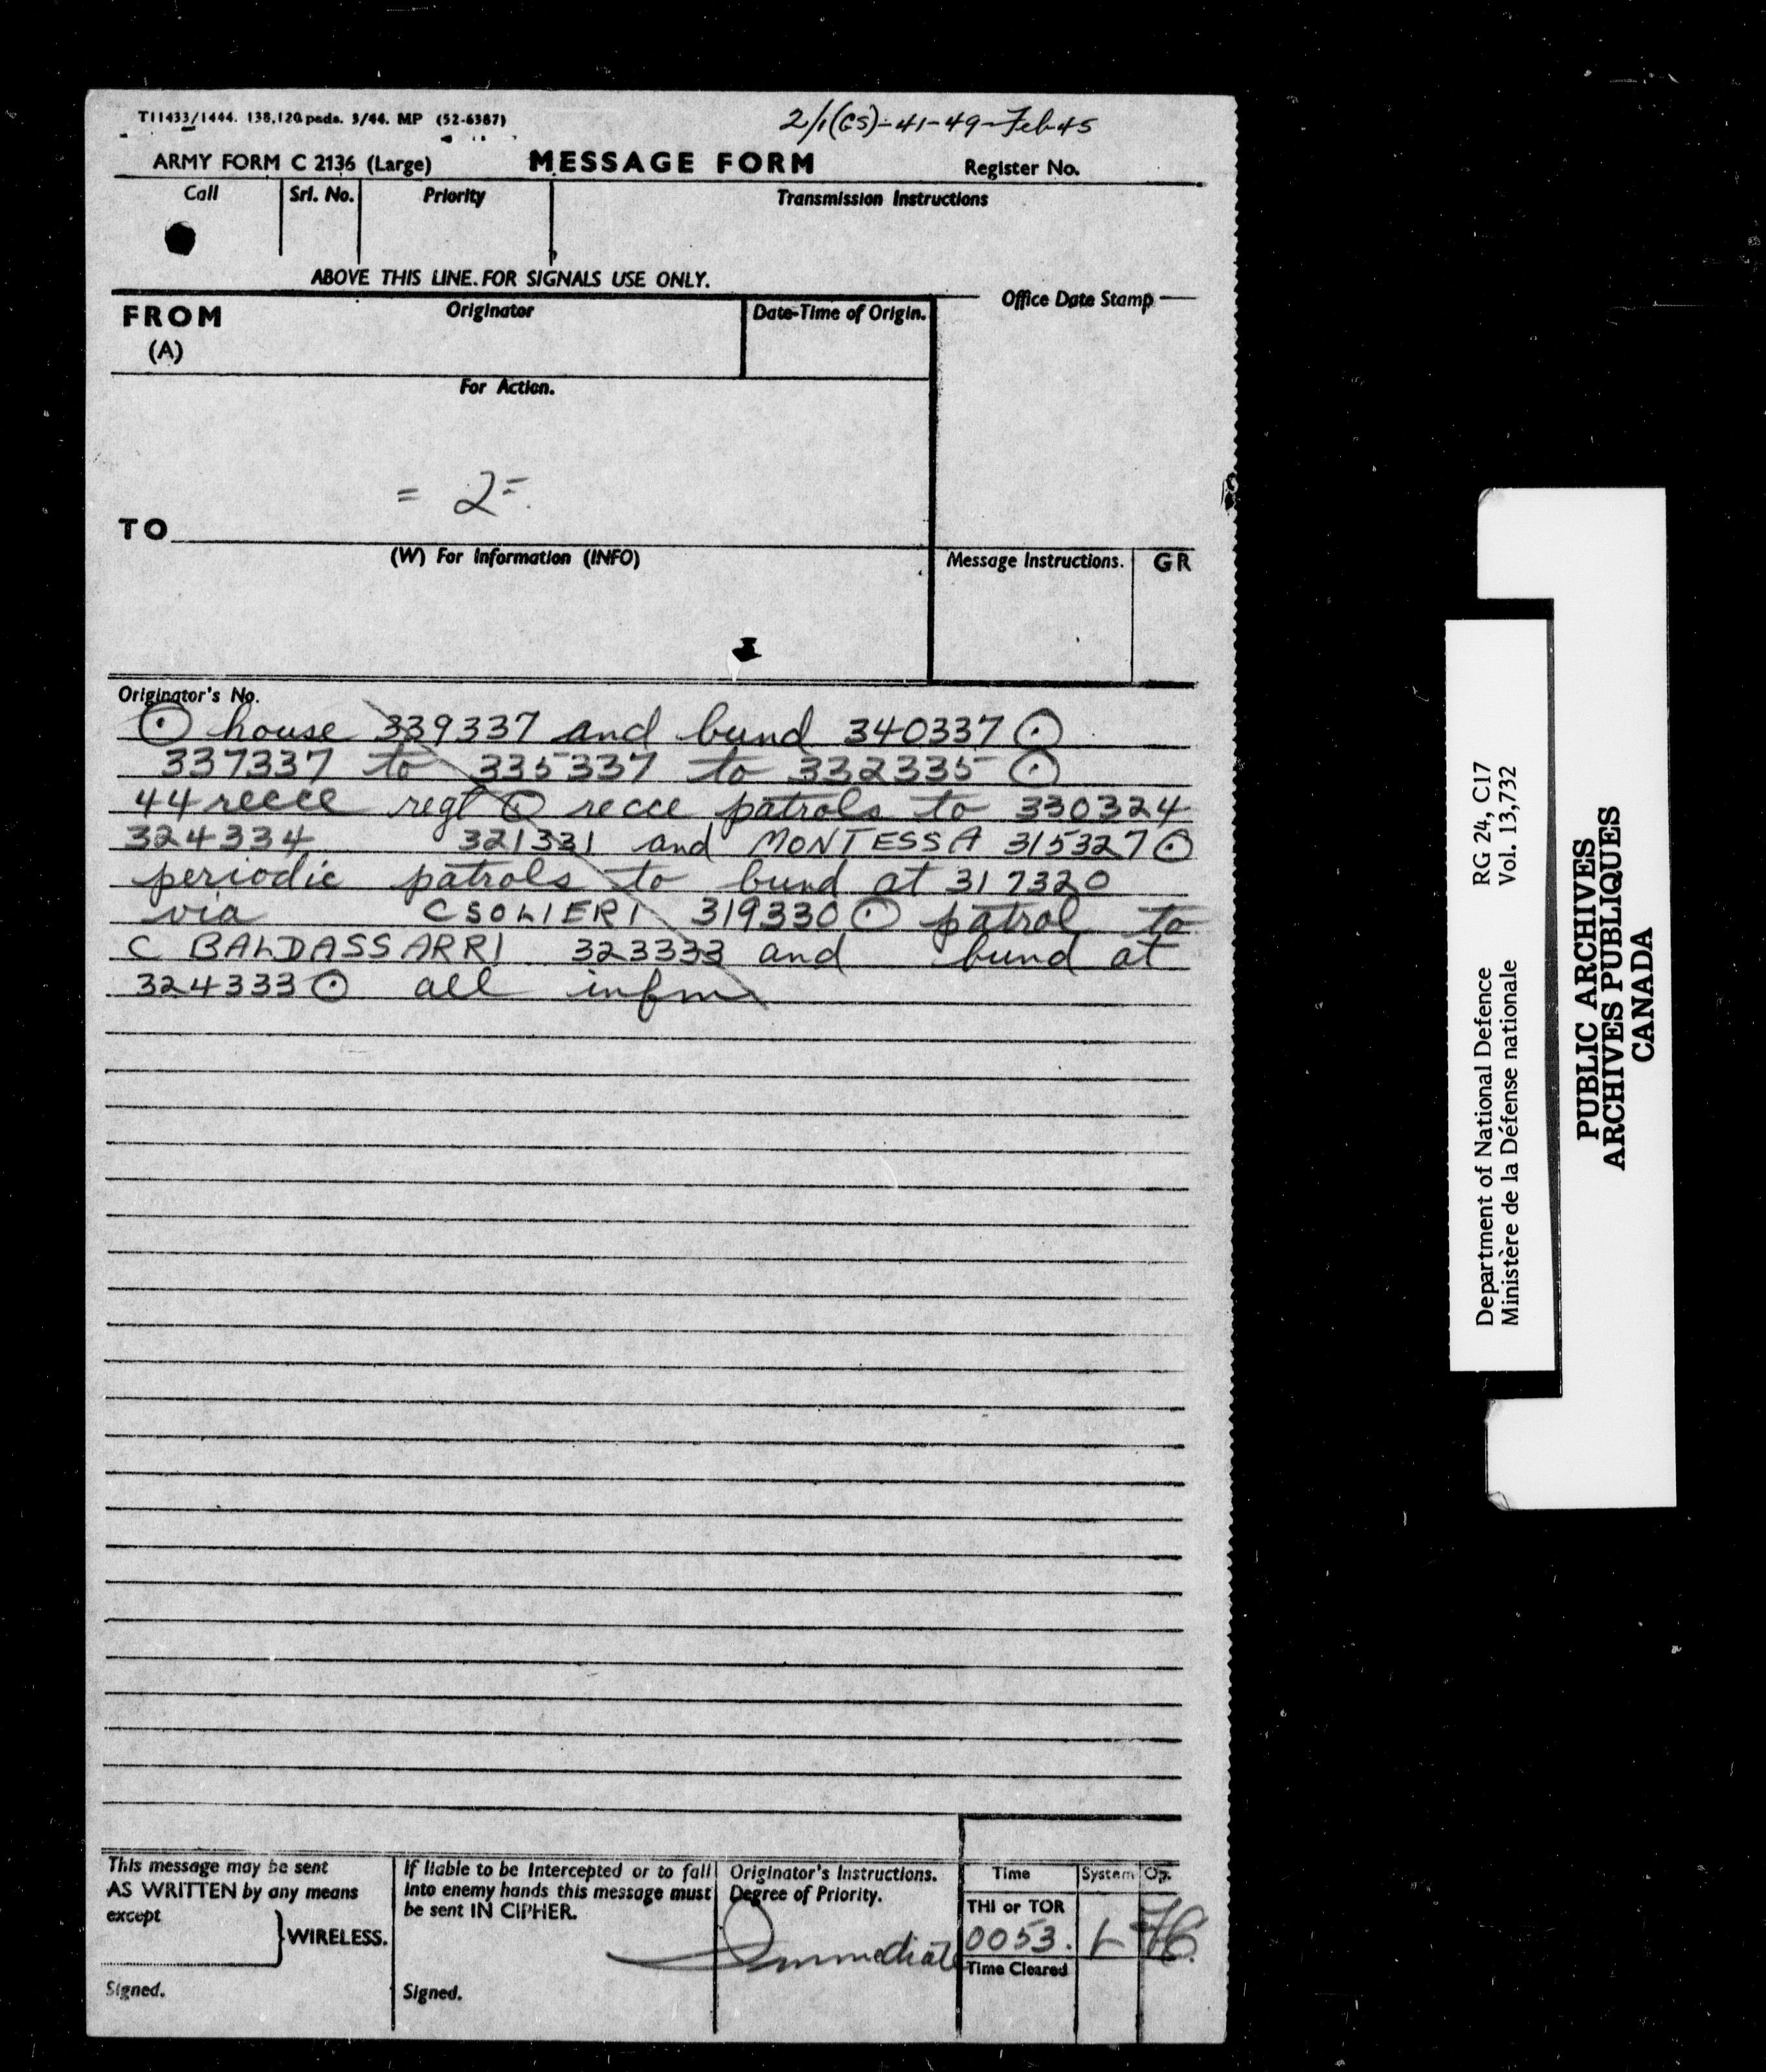 T11433/1444. 138,120 pads. 3/44. MP (52-6387)
2/1(GS)-41-49-Feb 45
ARMY FORM C 2136 (Large) MESSAGE FORM Register No.
Call Srl. No. Priority Transmission Instructions
ABOVE THIS LINE. FOR SIGNALS USE ONLY.
FROM Originator Date-Time of Origin. Office Date Stamp
(A)
For Action.
= 2 =
TO
(W) For Information (INFO) Message Instructions. GR
Originator's No.
⊙ house 339337 and bund 340337 ⊙
337337 to 335337 to 332335 ⊙
44 recce regt ⊙ recce patrols to 330324
324334 321331 and MONTESSA 315327 ⊙
periodic patrols to bund at 317320
via C SOLIERI 319330 ⊙ patrol to
C BALDASSARRI 323333 and bund at
324333 ⊙ all infm
This message may be sent
AS WRITTEN by any means
except
WIRELESS.
Signed.
If liable to be intercepted or to fall
into enemy hands this message must
be sent IN CIPHER.
Signed.
Originator's Instructions.
Degree of Priority.
Immediate
Time System Op.
THI or TOR
0053.
Time Cleared
Department of National Defence RG 24, C17
Ministère de la Défense nationale Vol. 13,732
PUBLIC ARCHIVES
ARCHIVES PUBLIQUES
CANADA